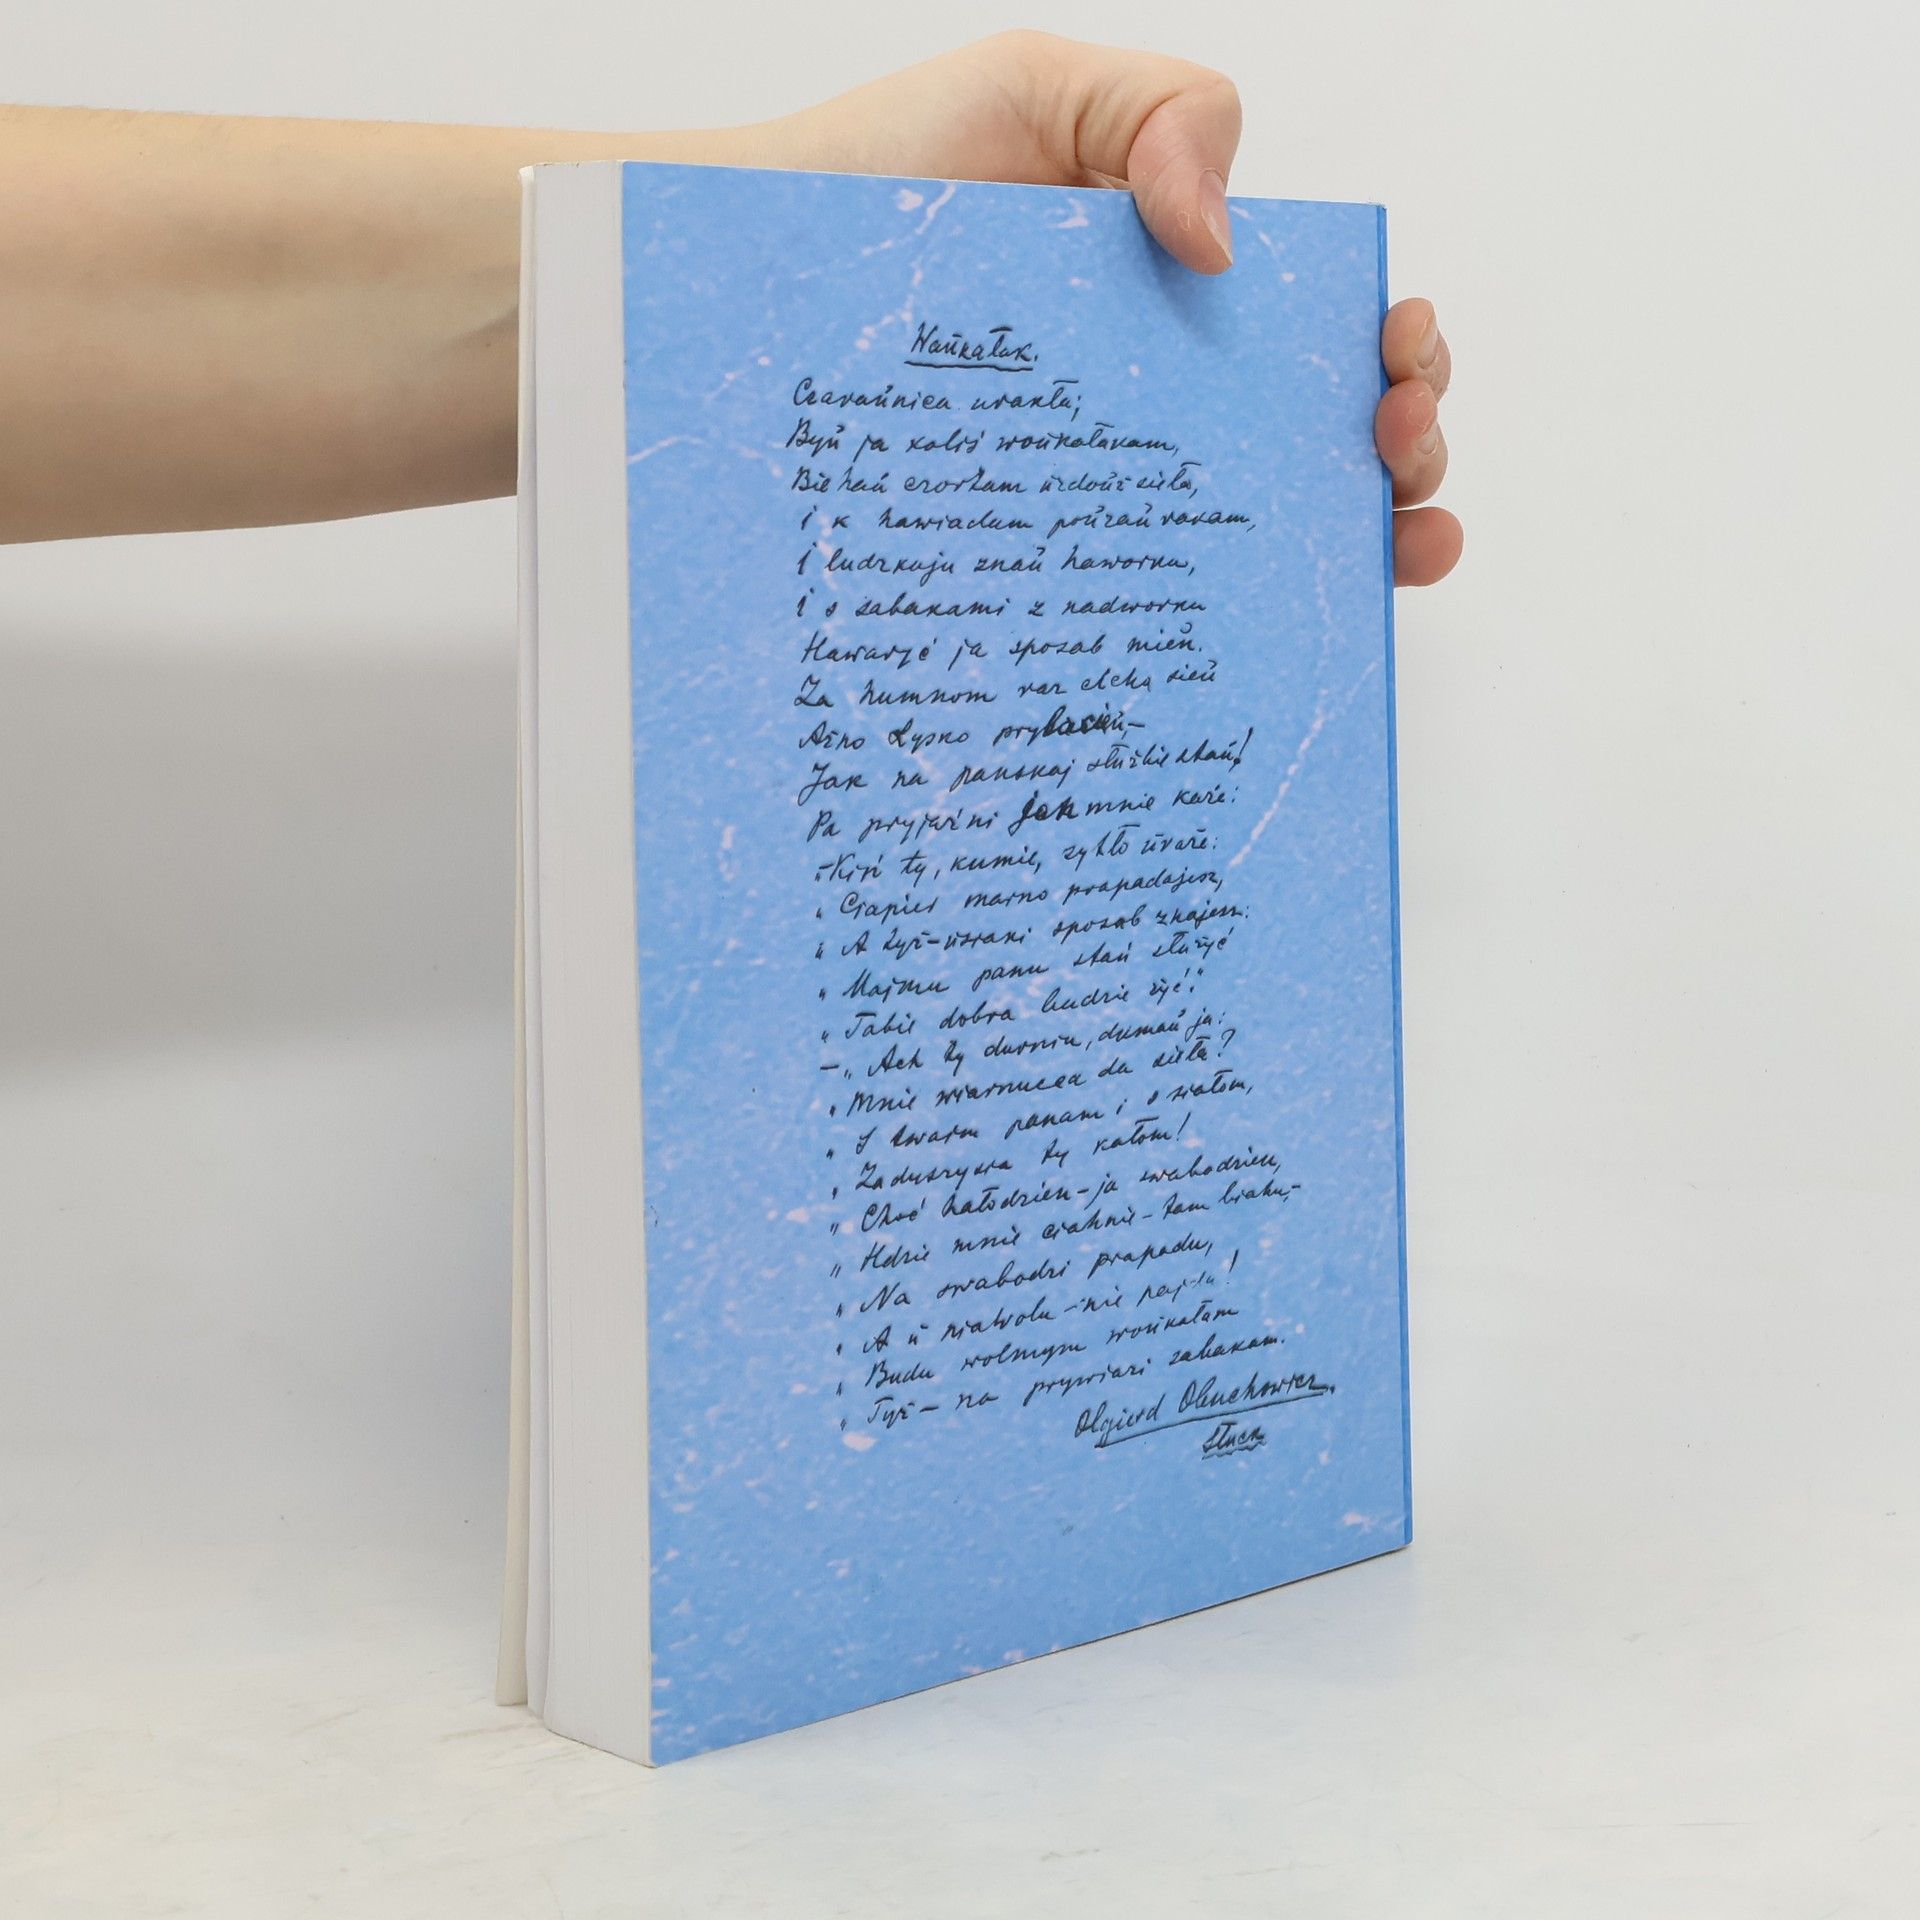 Waŭkałak.
Czaraŭnica urakła;
Byŭ ja koliś woŭkałakam,
Biehaŭ czortam ŭzdoŭż sieła,
i k hawiadam poŭzaŭ rakam,
I ludzkuju znaŭ haworku,
I s sabakami z nadworku
Hawaryć ja sposab mieŭ.
Za humnom raz cicha sieŭ
Ażno Łysko prylacieŭ,—
Jak na panskaj służbie staŭ!
Pa pryjaźni jon mnie każe:
„—Kiń ty, kumie, żytło ŭraże:
„Ciapier marno prapadajesz,
„A tyż-ŭsiaki sposab znajesz:
„Majmu panu stań służyć
„Tabie dobra budzie żyć!"
—„Ach ty durniu, dumaŭ ja:
„Mnie wiarnucca da sieła?
„S twaim panam i s siałom,
„Zaduszysia ty kałom!
„Choć hałodzien-ja swabodzien,
„Hdzie mnie ciahnie-tam biahu,—
„Na swabodzi prapadu,
„A ŭ niawolu-nie pajdu!
„Budu wolnym woŭkałam
„Tyż— na prywiazi sabakam.
Olgierd Obuchowicz.
Słuck